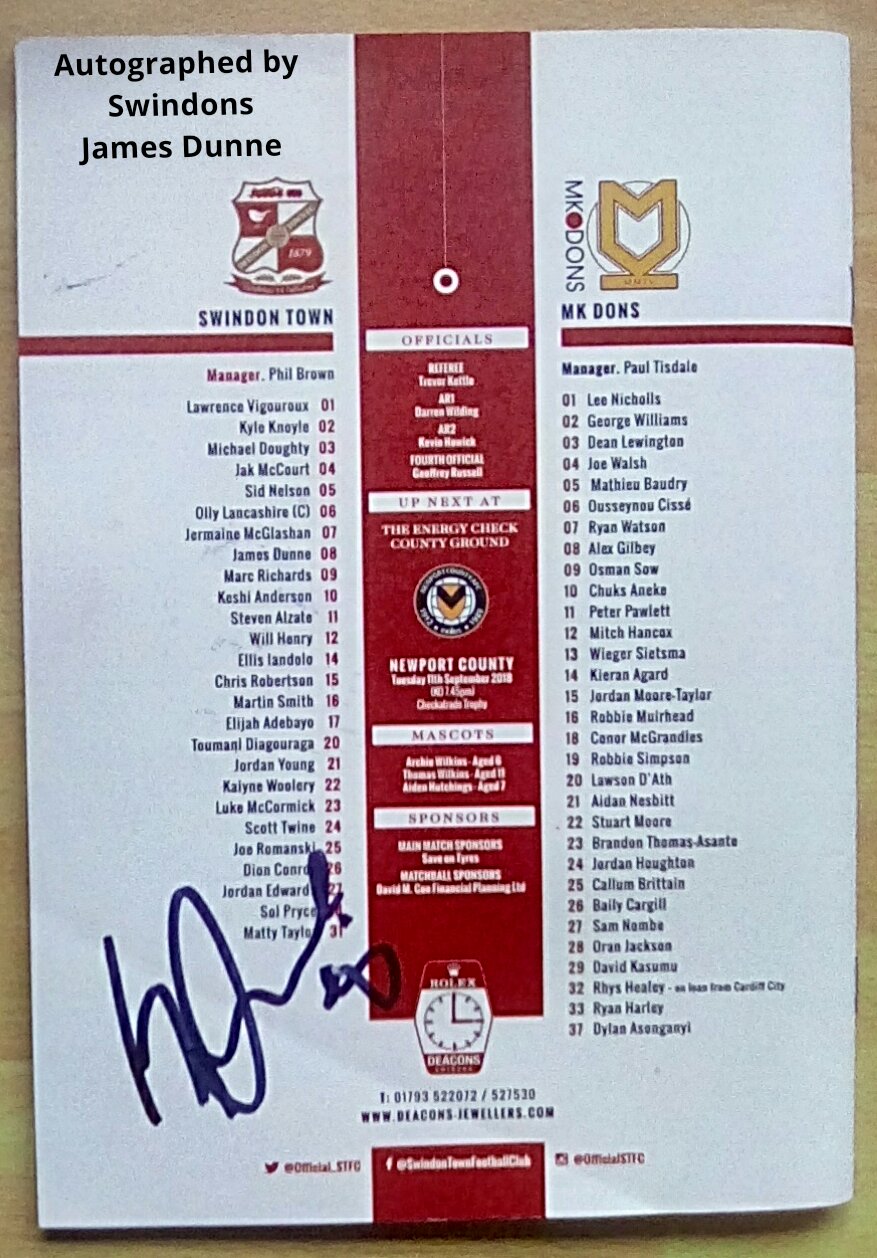 Autographed by
Swindons
James Dunne
1879
SWINDON TOWN
Manager. Phil Brown
Lawrence Vigouroux 01
Kyle Knoyle 02
Michael Doughty 03
Jak McCourt 04
Sid Nelson 05
Olly Lancashire (C) 06
Jermaine McGlashan 07
James Dunne 08
Marc Richards 09
Keshi Anderson 10
Steven Alzate 11
Will Henry 12
Ellis Iandolo 14
Chris Robertson 15
Martin Smith 16
Elijah Adebayo 17
Toumani Diagouraga 20
Jordan Young 21
Kaiyne Woolery 22
Luke McCormick 23
Scott Twine 24
Joe Romanski 25
Dion Conro 26
Jordan Edward 27
Sol Pryce
Matty Taylo 31
OFFICIALS
REFEREE
Trevor Kettle
AR1
Darren Wilding
AR2
Kevin Howick
FOURTH OFFICIAL
Geoffrey Russell
UP NEXT AT
THE ENERGY CHECK
COUNTY GROUND
NEWPORT COUNTY
Tuesday 11th September 2018
(KO 7.45pm)
Checkatrade Trophy
MASCOTS
Archie Wilkins - Aged 6
Thomas Wilkins - Aged 11
Aiden Hutchings - Aged 7
SPONSORS
MAIN MATCH SPONSORS
Save on Tyres
MATCHBALL SPONSORS
David M. Coe Financial Planning Ltd
ROLEX
DEACONS
T: 01793 522072 / 527530
WWW.DEACONS-JEWELLERS.COM
MK DONS
MMIV
MK DONS
Manager. Paul Tisdale
01 Lee Nicholls
02 George Williams
03 Dean Lewington
04 Joe Walsh
05 Mathieu Baudry
06 Ousseynou Cissé
07 Ryan Watson
08 Alex Gilbey
09 Osman Sow
10 Chuks Aneke
11 Peter Pawlett
12 Mitch Hancox
13 Wieger Sietsma
14 Kieran Agard
15 Jordan Moore-Taylor
16 Robbie Muirhead
18 Conor McGrandles
19 Robbie Simpson
20 Lawson D'Ath
21 Aidan Nesbitt
22 Stuart Moore
23 Brandon Thomas-Asante
24 Jordan Houghton
25 Callum Brittain
26 Baily Cargill
27 Sam Nombe
28 Oran Jackson
29 David Kasumu
32 Rhys Healey - on loan from Cardiff City
33 Ryan Harley
37 Dylan Asonganyi
@Official_STFC
@SwindonTownFootballClub
@OfficialSTFC